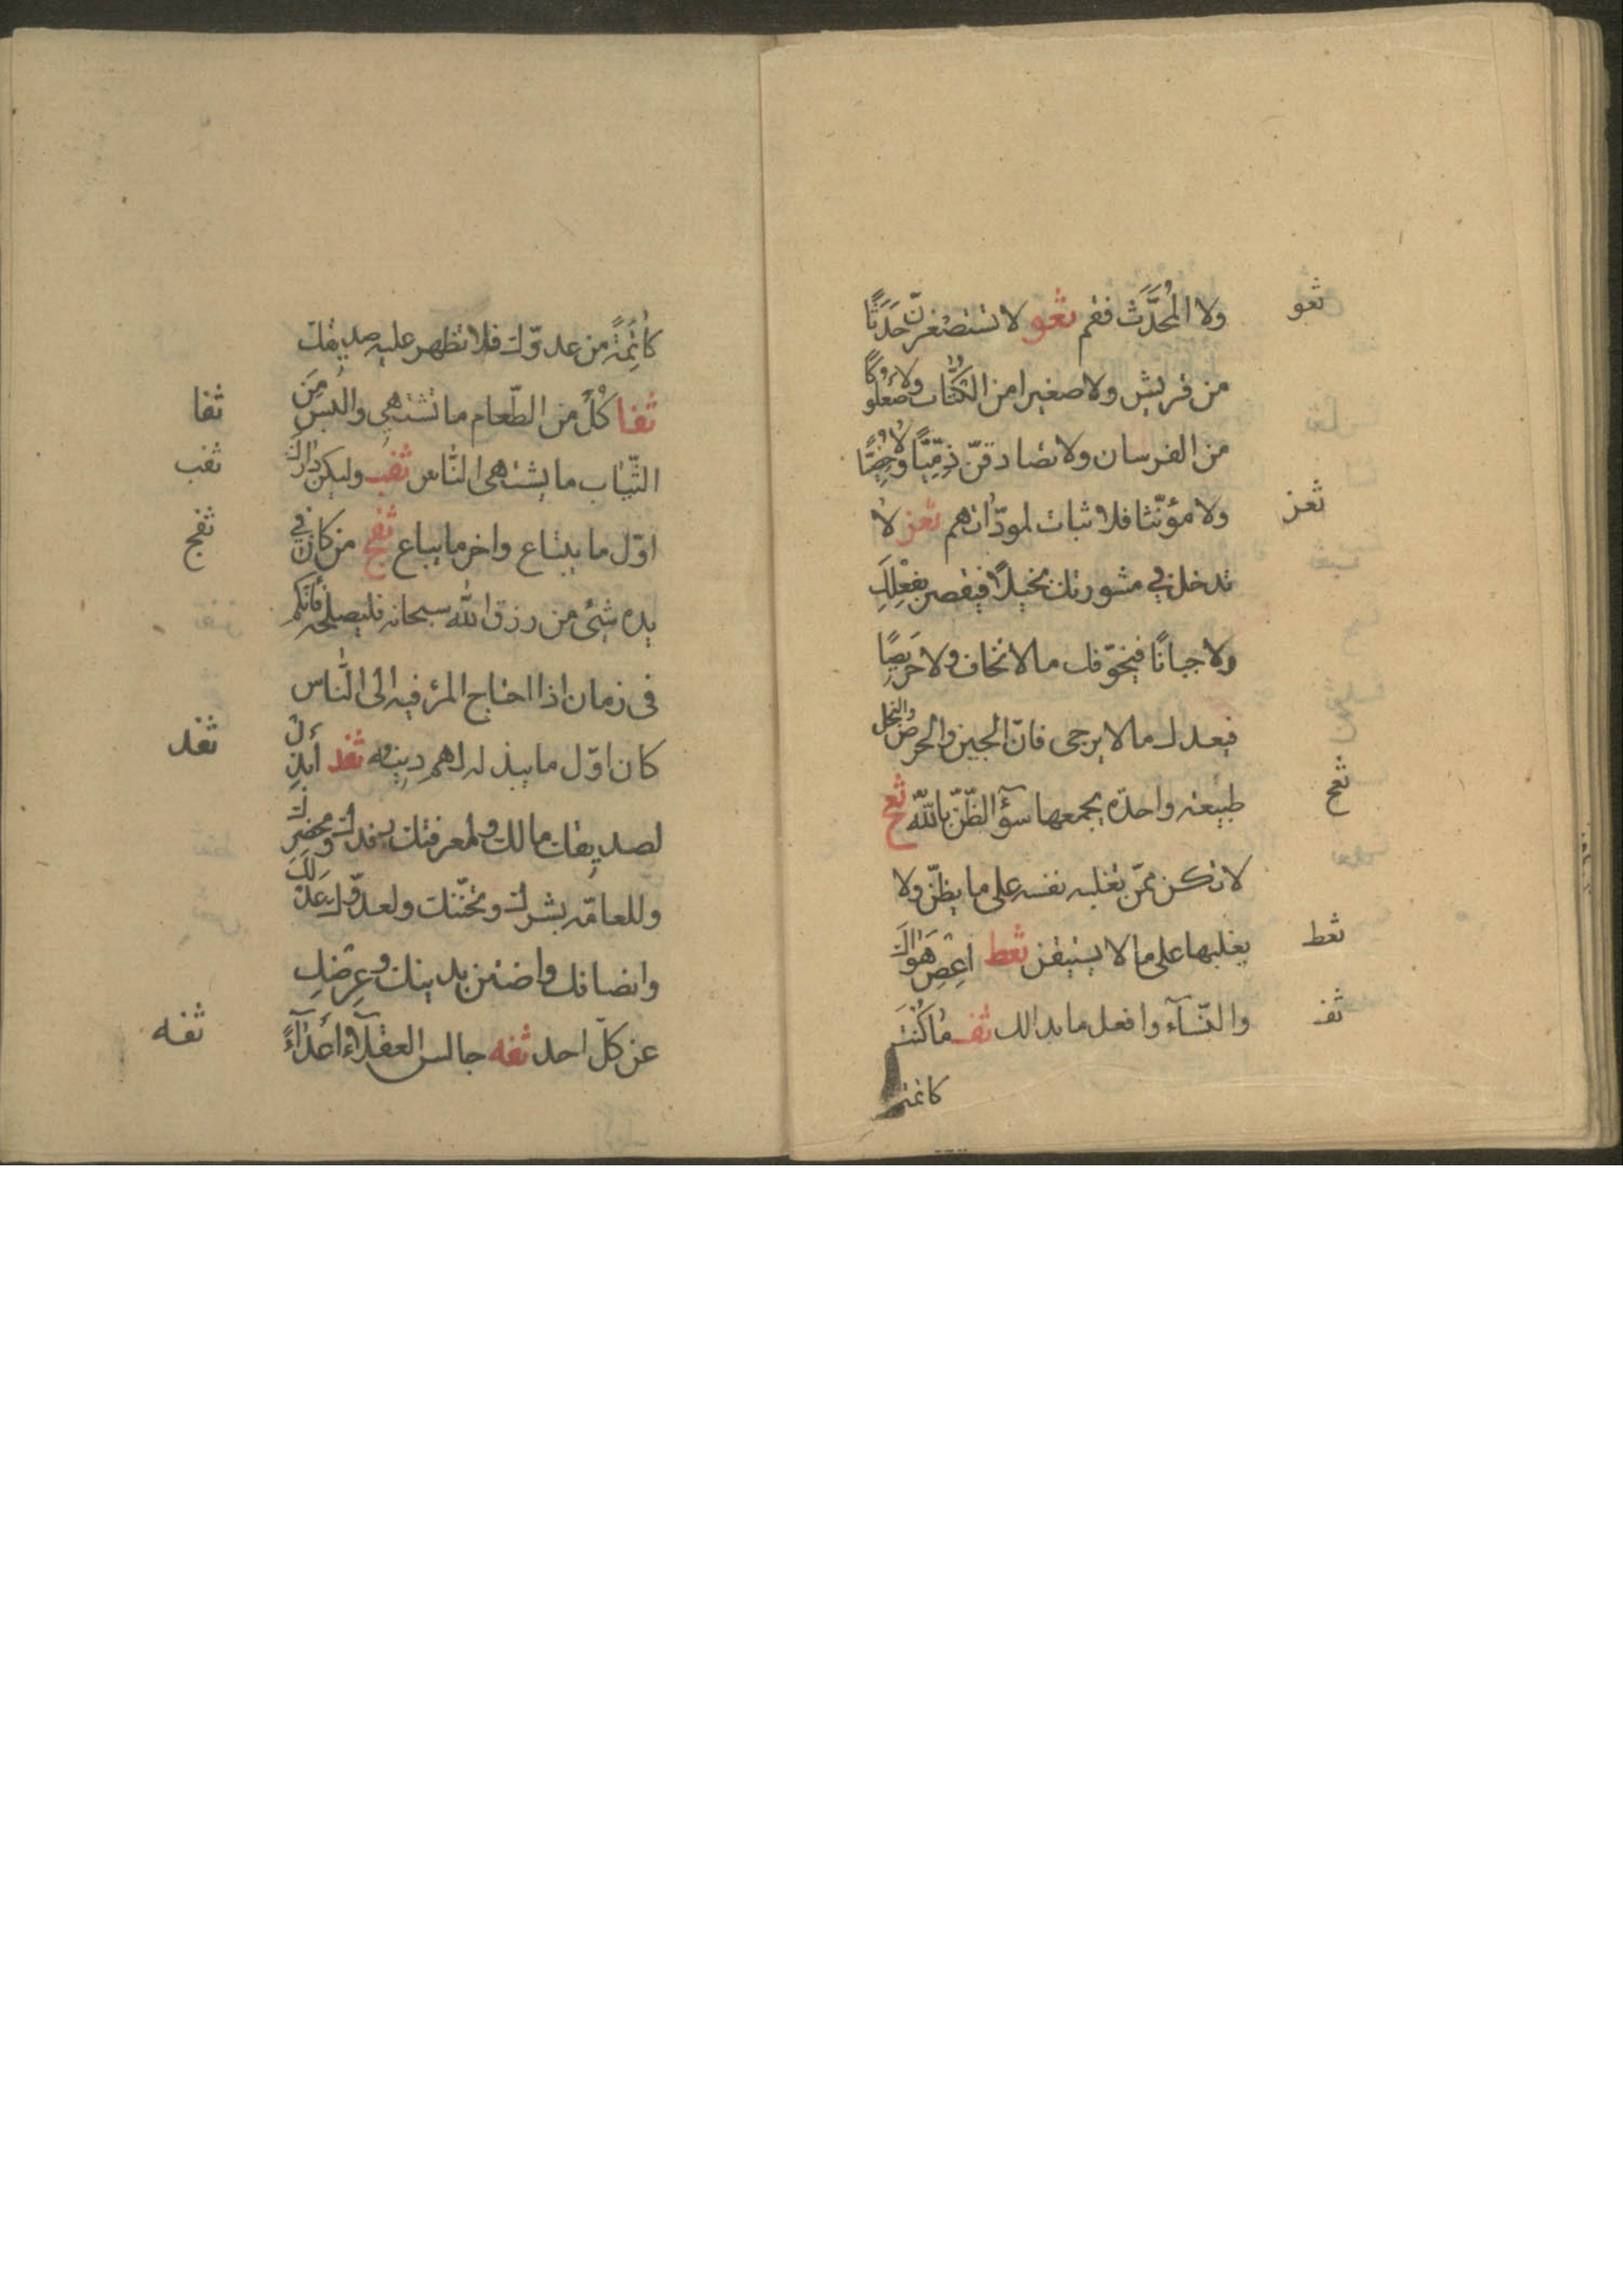 ولا المُحَدَّثَ فقم ثغو لا تستصغرنّ حَدَثًا
ثغو
من قريش ولا صغيرا من الكُتَّاب ولا صُعْلُوكًا
من الفرسان ولا تصادقنّ ذِمِّيًّا ولا خَصِيًّا
ولا مؤنّثا فلا ثبات لمودّاتهم ثغز لا
ثغز
تدخل في مشورتك بخيلًا فيقصر بفعلك
ولا جبانًا فيخوّفك مالا تخاف ولا حَرِيصًا
فيعدك مالا يرجى فانّ الجبن والحرص والبخل
طبيعته واحدة يجمعها سوٓء الظّنّ بالله ثغح
ثغح
لا تكن ممّن تغلبه نفسه على ما يظنّ ولا
يغلبها على مالا يستيقن ثغط اعصِ هَوَاكَ
ثغط
والنّسآء وافعل ما بدالك ثف ما كُنْتَ
ثف
كاتمه
كَاتِمَةً من عدوّك فلا تظهر عليه صديقك
ثفا كُلْ من الطّعام ما تشتهي والبس مِنَ
ثفا
الثّياب ما يشتهي النّاس ثفب وليكن دَارَكَ
ثفب
اوّل ما يبتاع واخر ما يباع ثفج من كان في
ثفج
يده شئ من رزق الله سبحانه فليصلحه فَانّكم
في زمان اذا احتاج المرء فيه الى النّاس
كان اوّل ما يبذله لهم دينه ثفد أبذِلْ
ثفد
لصديقك مالك ولمعرفتك رفدك ومحضرك
وللعامّه بشرك وتحنّنك ولعدوّك عَدْلَكَ
وانصافك واضنن بدينك وعِرضِك
عن كلّ احد ثفه جالس العقلآء أعدَآءً
ثفه